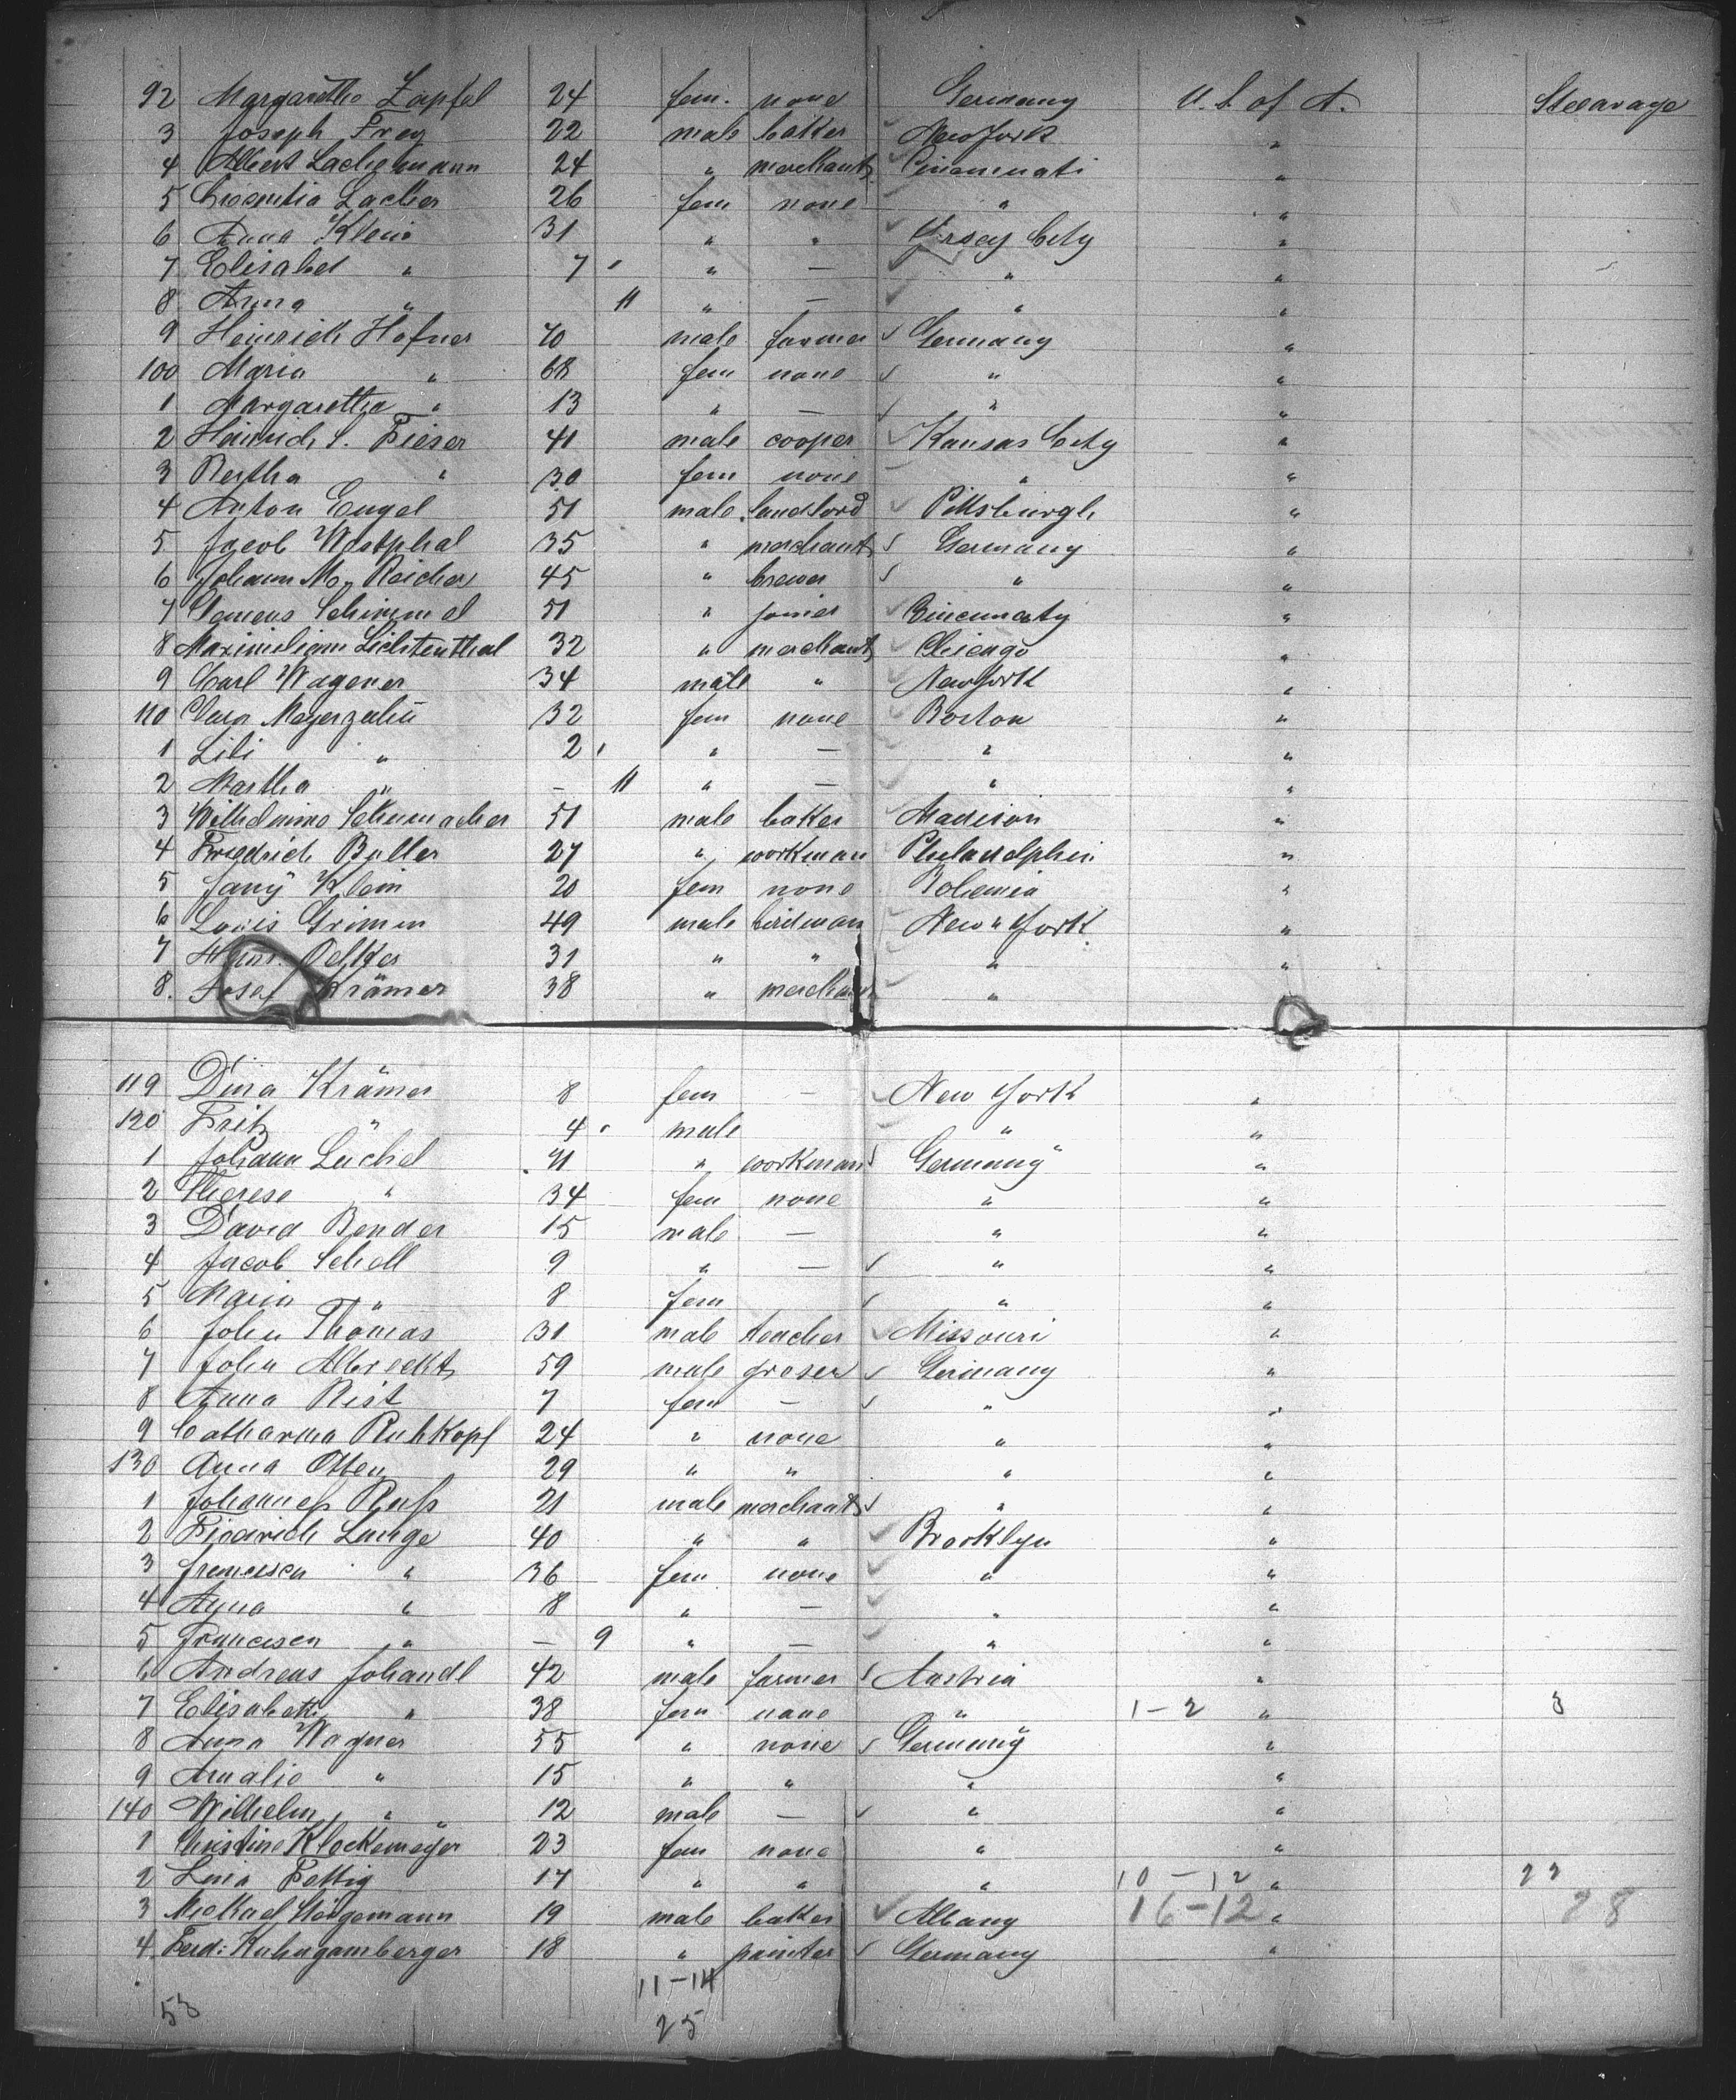 92 Margaretha Zapfel 24 fem. none Germany U. S. of A. Steearage
3 Joseph Frey 22 male baker New York "
4 Albert Lachemann 24 " merchant Cincinnati "
5 Lacher 26 fem none " "
6 Anna Klein 31 " " Jersey City "
7 Elisabet " 7 " — " "
8 Anna " 11 " — " "
9 Heinrich Hafner 70 male farmer Germany "
100 Maria " 68 fem none " "
1 Margaretha " 13 " — " "
2 Heinrich S. Fieser 41 male cooper Kansas City "
3 Bertha " 30 fem none " "
4 Anton Engel 51 male landlord Pittsburgh "
5 Jacob Westphal 35 " merchant Germany "
6 Johann M. Reicher 45 " brewer " "
7 Clemens Schimmel 51 " joiner Cincinnaty "
8 Maximilian Lichtenthal 32 " merchant Chicago "
9 Carl Wagener 34 male " New York "
110 Clara 32 fem none Boston "
1 Lili " 2 " — " "
2 Martha " — 11 " — " "
3 Wilhelmine Schumacher 51 male baker Madison "
4 Friedrich Buller 27 " workman Philadelphia "
5 Fany Klein 20 fem none Bohemia "
6 Louis Grimm 49 male birdman New York "
7 Oelkers 31 " " " "
8. Josef Krämer 38 " merchant " "
119 Dina Krämer 8 fem — New York "
120 Fritz " 4 male " "
1 Johann Luchel 41 " workman Germany "
2 Therese " 34 fem none " "
3 David Bender 15 male — " "
4 Jacob Schell 9 " — " "
5 Maria " 8 fem " "
6 John Thomas 31 male teacher Missouri "
7 John Albreckt 59 male groser Germany "
8 Anna Rist 7 fem — " "
9 Catharina Ruhkopf 24 " none " "
130 Anna Otten 29 " " " "
1 Johannes Ruß 21 male merchant " "
2 Friedrich Lange 40 " " Brooklyn "
3 Francisca " 36 fem none " "
4 Anna " 8 " — " "
5 Francisca " — 9 " — " "
6 Andreas Johandl 42 male farmer Austria "
7 Elisabeth " 38 fem none " 1-2 " 3
8 Anna Wagner 55 " none Germany "
9 Amalie " 15 " " " "
140 Wilhelm " 12 male — " "
1 Christine Klockemeyer 23 fem none " "
2 Lina Fettig 17 " " " 10-12 "
3 Michael Högemann 19 male baker Albany 16-12 " 28
4 Ferd: Kuhngamberger 18 " painter Germany "
11-14
53 25